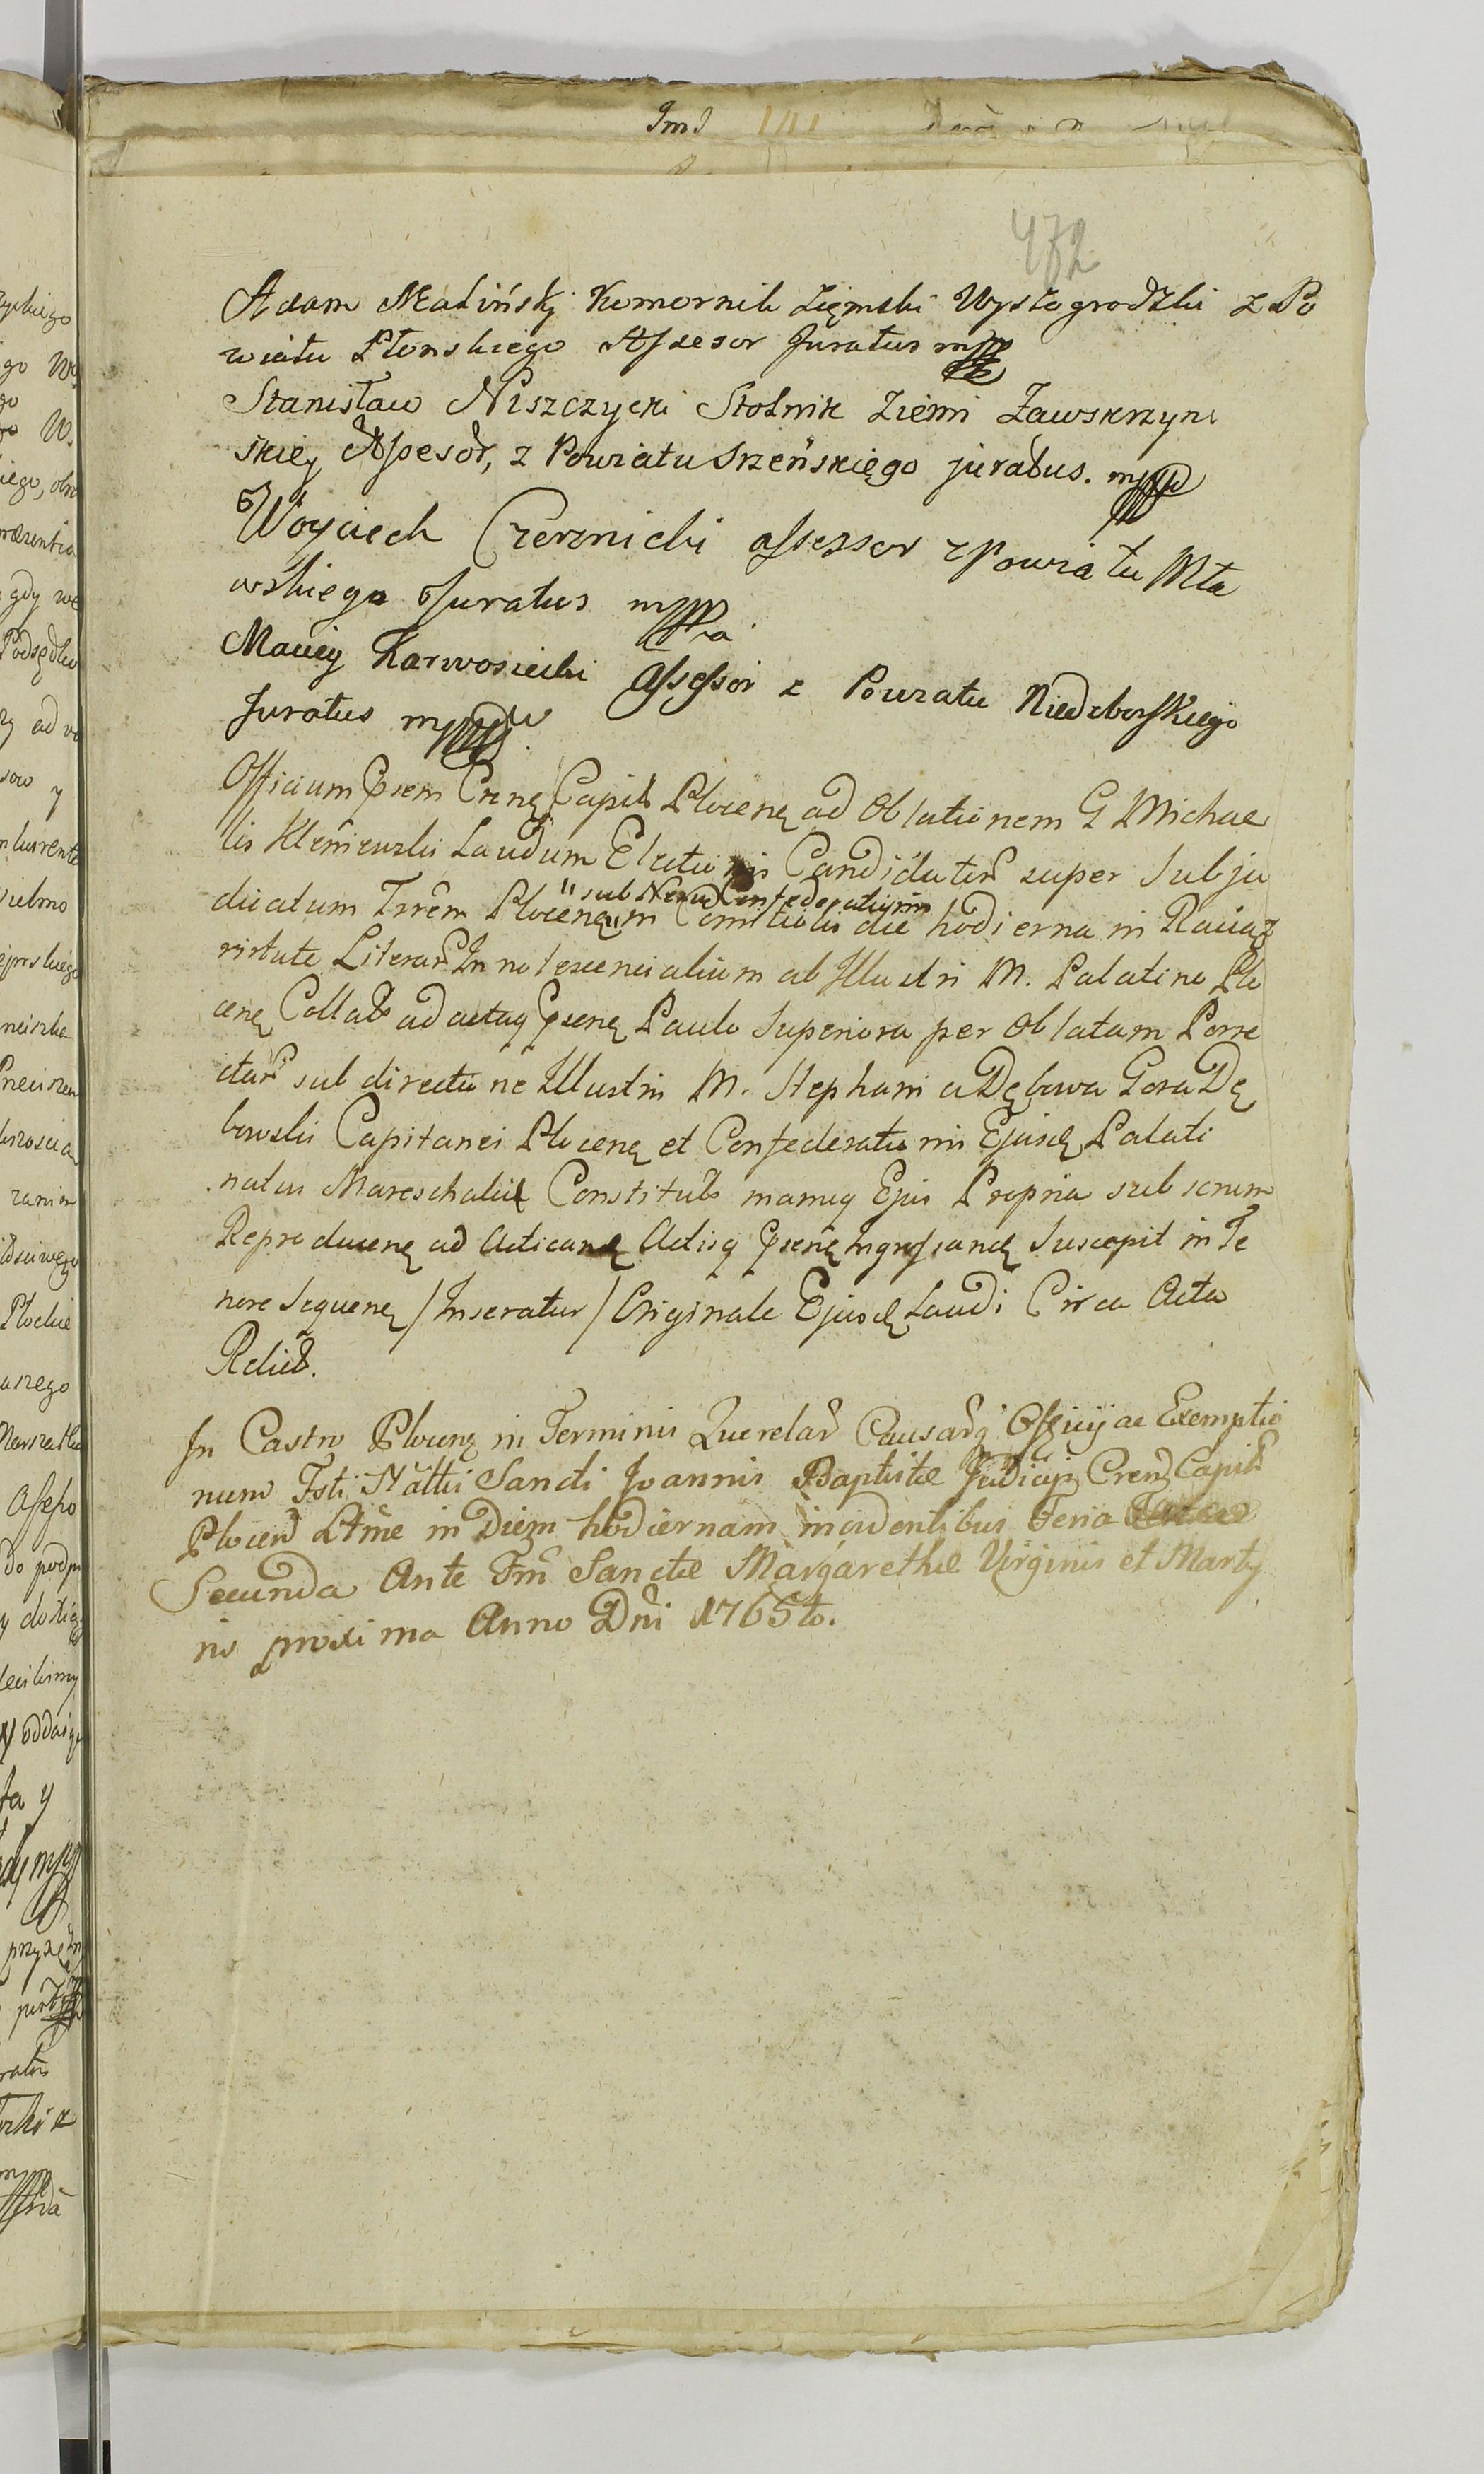 472
Adam Maliński Komornik Zięmski Wyszogrodzki z Po
wiatu Płonskiego Assesor Juratus mpp
Stanisław Niszczycki Stolnik Ziemi Zawskrzyn
skiey Assesor, z Powiatu Srzeńskięgo juratus. mpp
Woyciech Czernicki assessor z Powiatu Mła
wskiego Juratus mppria
Maciey Karwosiecki Assessor z Powiatu Niedzborskiego
Juratus mpp
Officium Psens Crense Capit Plocens ad Oblationem G Michae
lis Kleniewski Laudum Electionis Candidator super Subju
dicatum Trrem Plocens "sub Nexu Confederationis" in Comitiolis die hodierna in Raciąz
virtute Literar Innotescencialium ab Illustri M. Palatino Plo
cens Collat ad actaq psens Paulo Superiora per Oblatam Porre
ctar sub directione Illustris M. Stephani a Dębowa Gora Dę
bowski Capitanei Plocens et Confederationis Ejusd Palati
natus Mareschalci Constitut manuq Ejus Propria subscrum
Reproducens ad Acticand Actisq psens Ingrossand Suscepit in Te
nore Sequens / Inseratur / Originale Ejusd Laudi Circa Acta
Relict.
In Castro Plocens in Terminis Querelar Causarq Officij ac Exemptio
num Fsti Nattis Sancti Joannis Baptistæ Judicijs Crens Capit
Plocens Ltme in Diem hodiernam incidentibus Feria
Secunda Ante Fm Sanctæ Margarethæ Virginis et Marty
ris proxima Anno Dni 1765to.